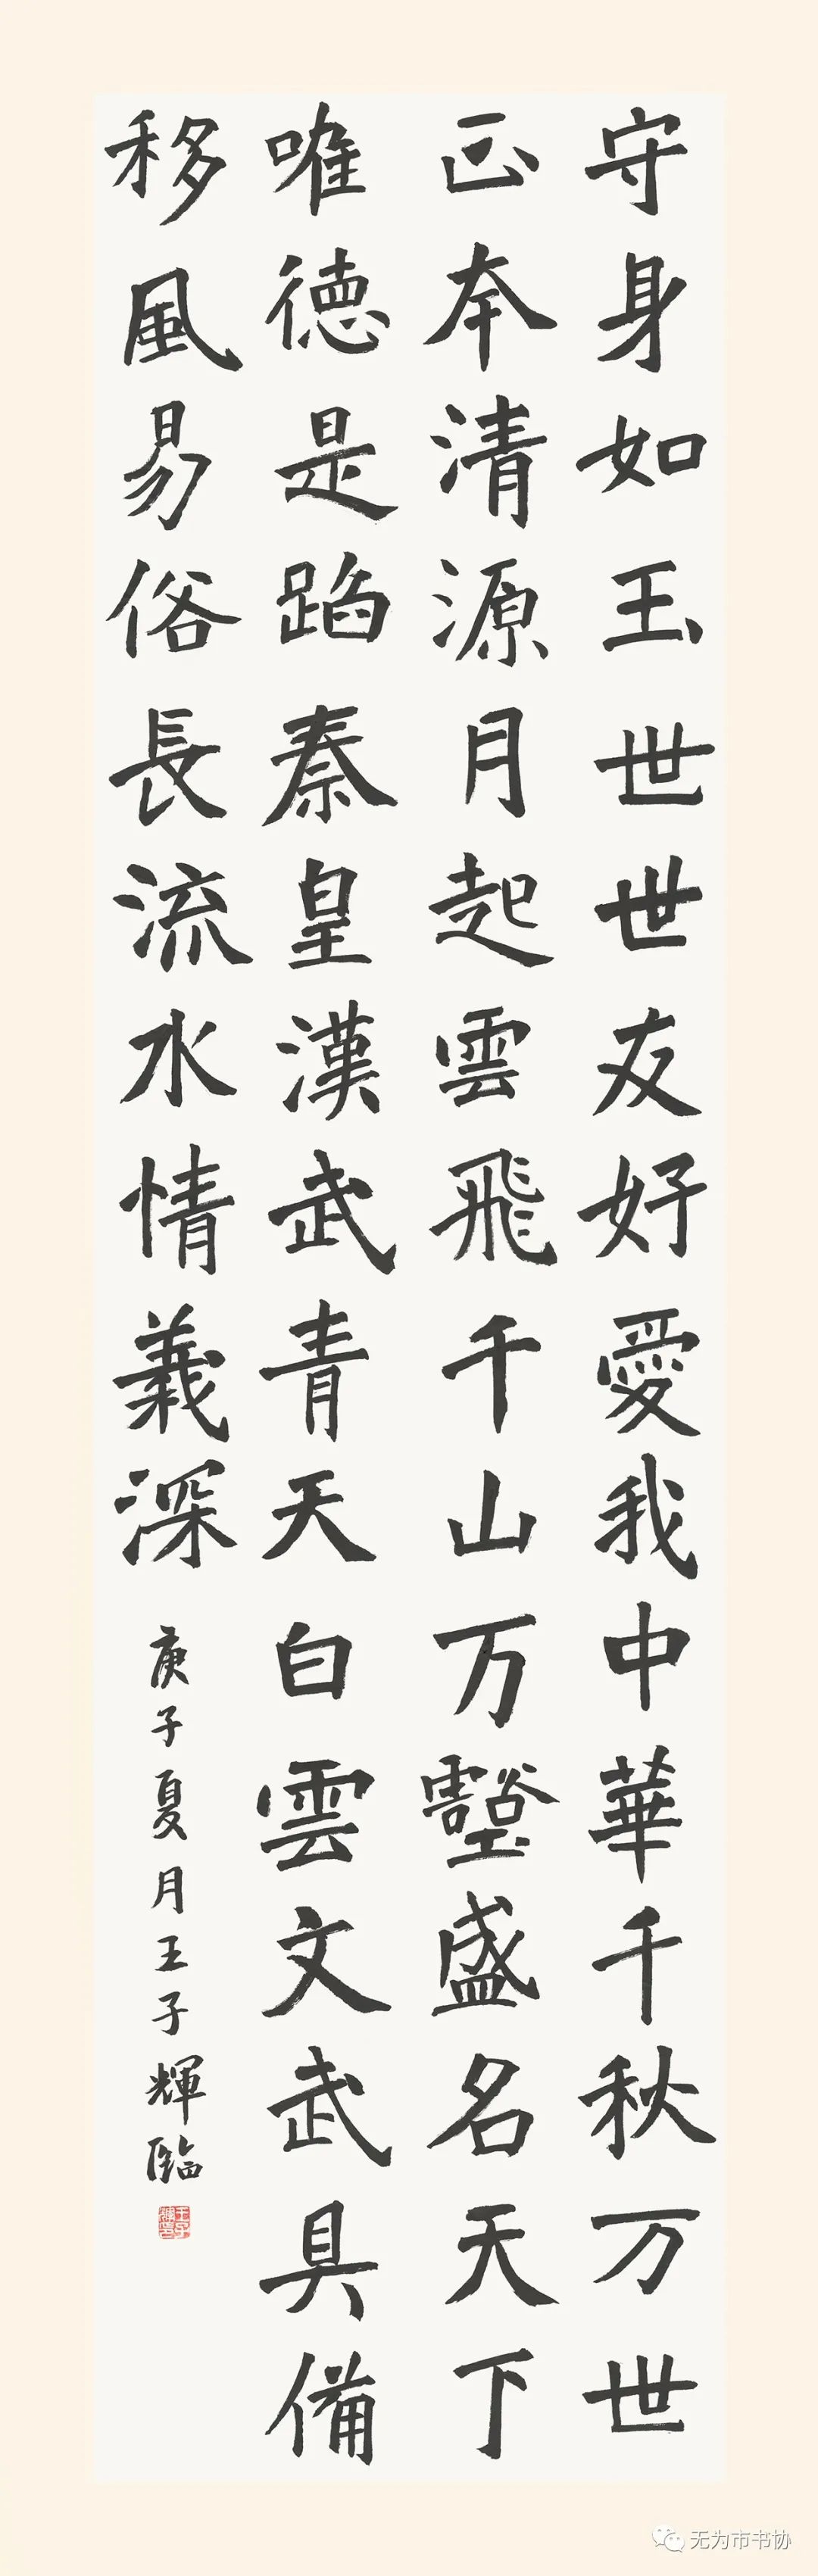 守身如玉世世友好愛我中華千秋万世
正本清源月起雲飛千山万壑盛名天下
唯德是蹈秦皇漢武青天白雲文武具備
移風易俗長流水情義深
庚子夏月王子輝臨
无为市书协